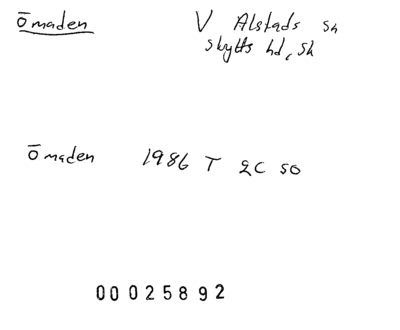 Ōmaden V Alstads sn
Skytts hd, Sk
Ōmaden 1986 T 2C SO
00025892